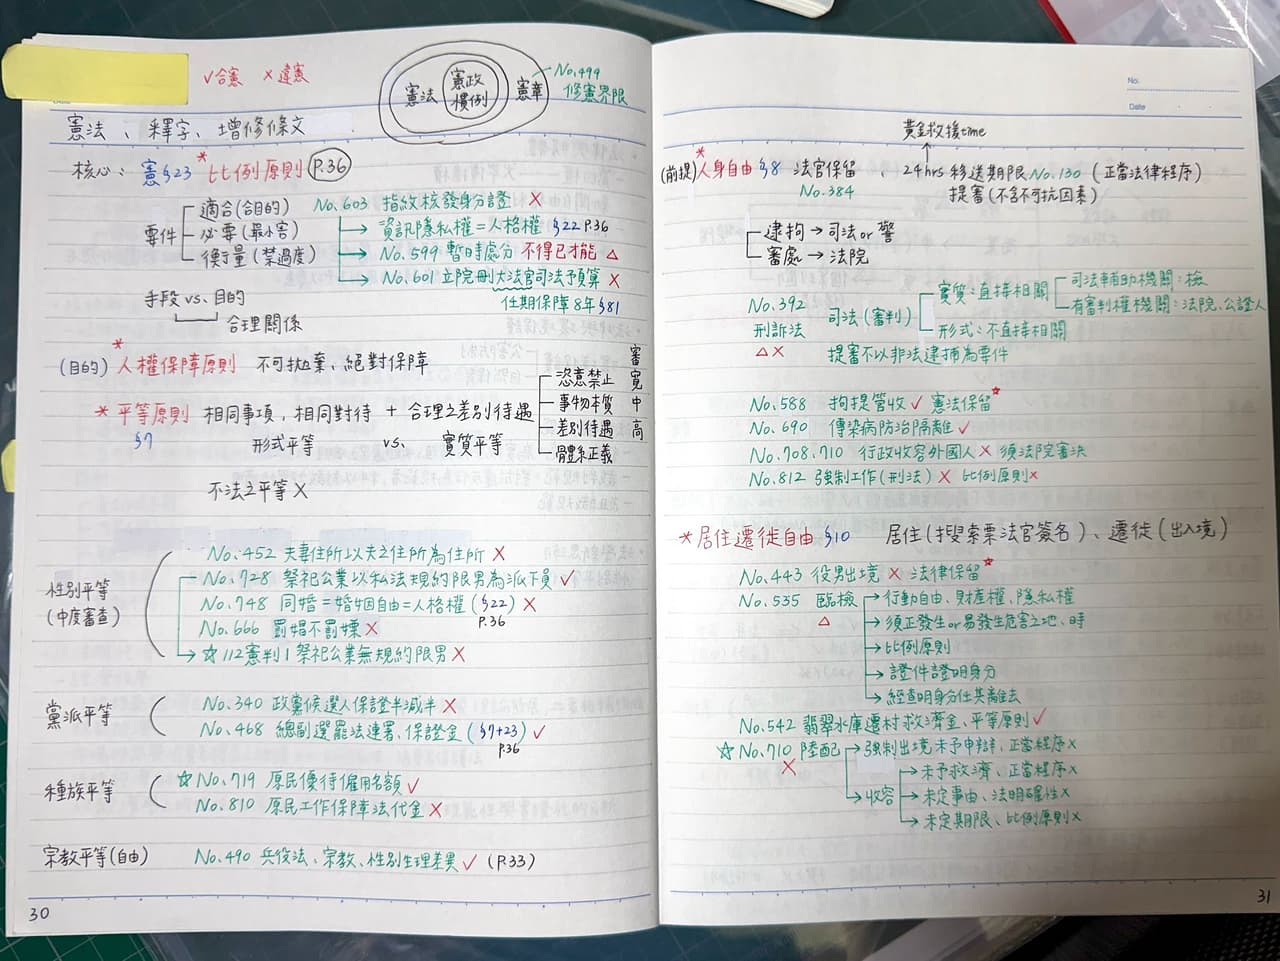 ✓合憲 ×違憲
憲法 憲政慣例 憲章 No.499 修憲界限
憲法、釋字、增修條文
核心: 憲§23 *比例原則 P.36
要件 適合(合目的)
必要(最小害)
衡量(禁過度)
手段 vs. 目的
合理關係
No.603 指紋核發身分證 ×
資訊隱私權=人格權 §22 P.36
No.599 暫時處分 不得已才能 △
No.601 立院刪大法官司法預算 ×
任期保障8年§81
(目的) *人權保障原則 不可拋棄、絕對保障
*平等原則 相同事項,相同對待 + 合理之差別待遇
§7 形式平等 vs. 實質平等
審
恣意禁止 寬
事物本質 中
差別待遇 高
體系正義
不法之平等 ×
性別平等
(中度審查)
No.452 夫妻住所以夫之住所為住所 ×
No.728 祭祀公業以私法規約限男為派下員 ✓
No.748 同婚=婚姻自由=人格權(§22) ×
P.36
No.666 罰娼不罰嫖 ×
☆112憲判1 祭祀公業無規約限男 ×
黨派平等
No.340 政黨候選人保證半減半 ×
No.468 總副選罷法連署、保證金(§7+23) ✓
P.36
種族平等
☆No.719 原民優待僱用名額 ✓
No.810 原民工作保障法代金 ×
宗教平等(自由) No.490 兵役法、宗教、性別生理差異 ✓ (P.33)
30
No.
Date
黃金救援time
(前提) *人身自由§8 法官保留、24hrs移送期限 No.130 (正當法律程序)
No.384 提審(不含不可抗因素)
逮拘→司法or警
審處→法院
No.392
刑訴法
△×
司法(審判)
實質:直接相關
司法輔助機關:檢
有審判權機關:法院、公證人
形式:不直接相關
提審不以非法逮捕為要件
No.588 拘提管收 ✓ 憲法保留*
No.690 傳染病防治隔離 ✓
No.708.710 行政收容外國人 × 須法院審決
No.812 強制工作(刑法) × 比例原則×
*居住遷徙自由§10 居住(搜索票法官簽名)、遷徙(出入境)
No.443 役男出境 × 法律保留*
No.535 臨檢 △
→行動自由、財產權、隱私權
→須正發生or易發生危害之地、時
→比例原則
→證件證明身分
→經查明身份任其離去
No.542 翡翠水庫遷村救濟金、平等原則 ✓
☆No.710 陸配 ×
→強制出境未予申辯,正當程序×
→收容
→未予救濟、正當程序×
→未定事由、法明確性×
→未定期限、比例原則×
31